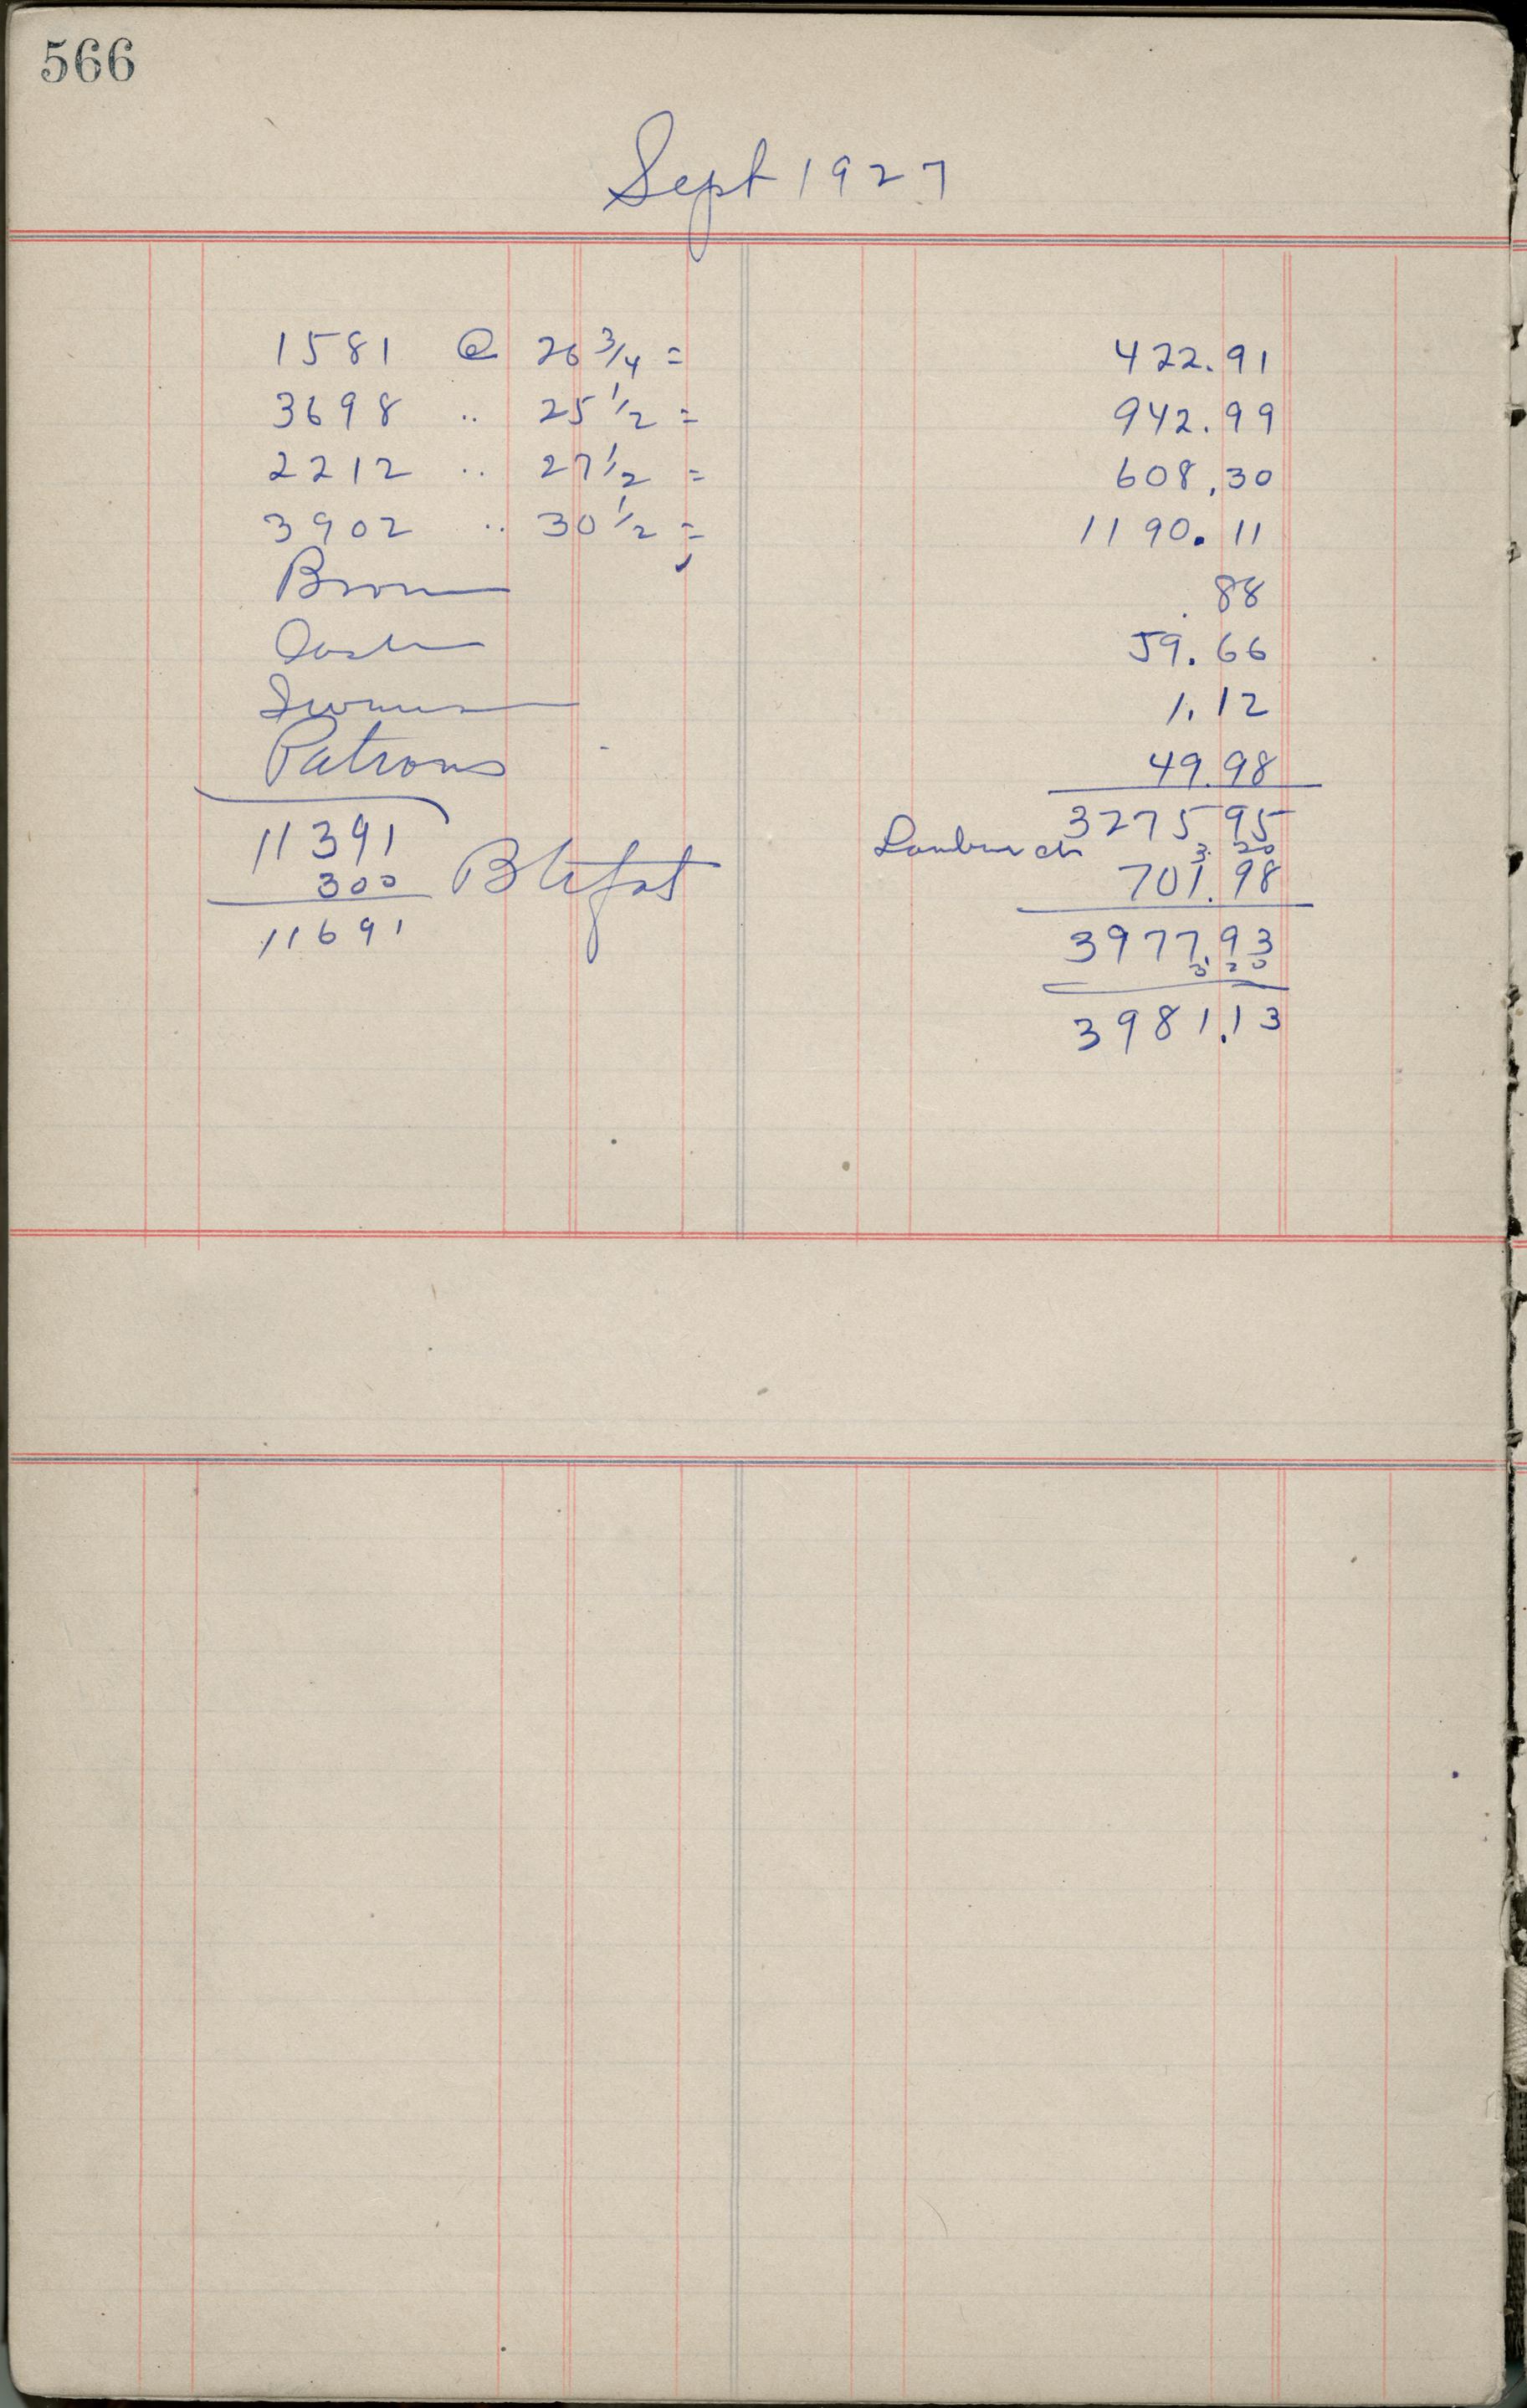 566
Sept 1927
1581 @ 26 3/4 = 422.91
3698 .. 25 1/2 = 942.99
2212 .. 27 1/2 = 608.30
3902 .. 30 1/2 = 1190.11
Brown .88
59.66
1.12
Patrons 49.98
11391 3275 95
3.20
300 701.98
11691 3977.93
3.20
3981.13